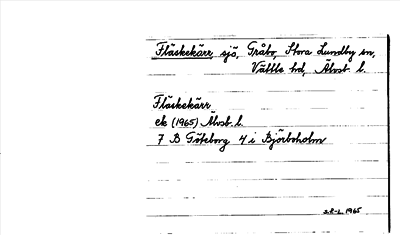 Fläskekärr, sjö, Gråbo, Stora Lundby sn,
Vättle hd, Älvsb. l.
Fläskekärr
ek (1965) Älvsb. l.
7 B Göteborg 4 i Björboholm
1965